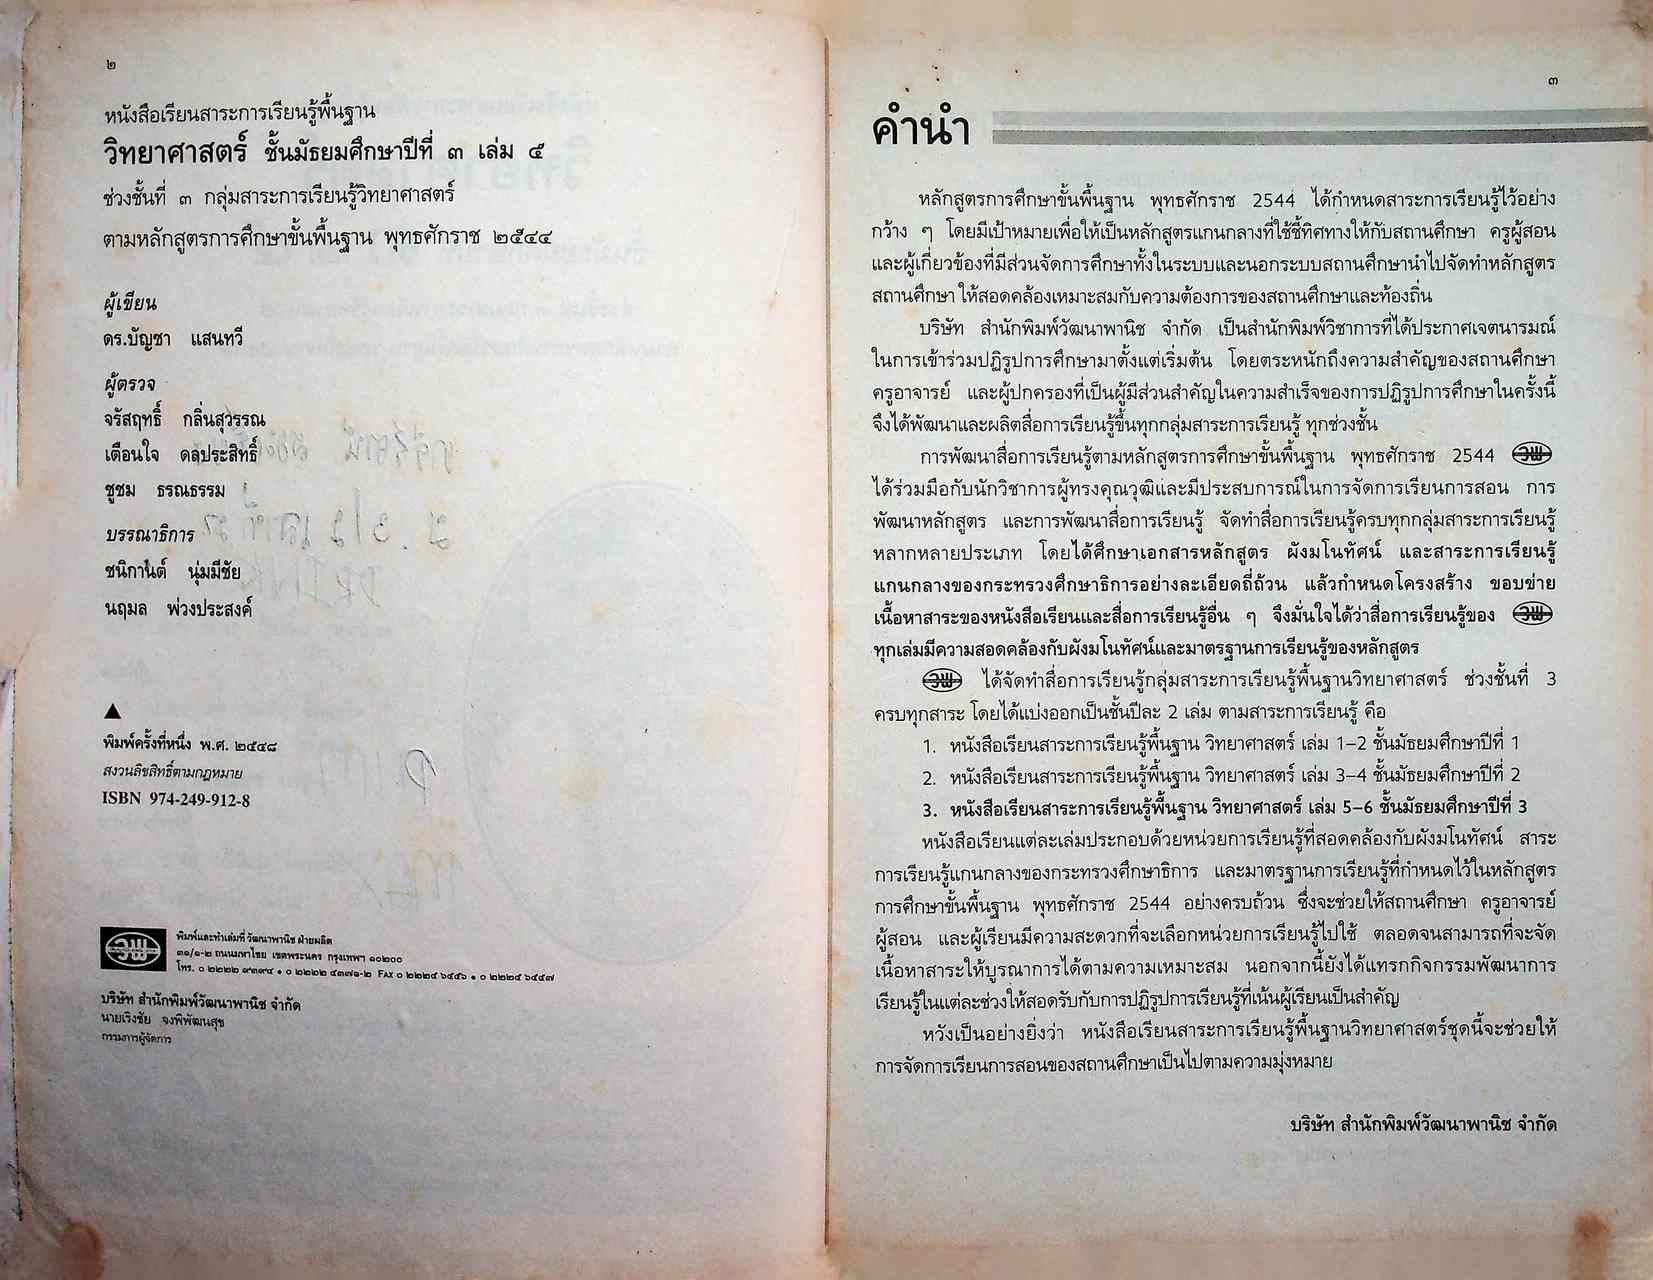 ๒
หนังสือเรียนสาระการเรียนรู้พื้นฐาน
วิทยาศาสตร์ ชั้นมัธยมศึกษาปีที่ ๓ เล่ม ๕
ช่วงชั้นที่ ๓ กลุ่มสาระการเรียนรู้วิทยาศาสตร์
ตามหลักสูตรการศึกษาขั้นพื้นฐาน พุทธศักราช ๒๕๔๔
ผู้เขียน
ดร.บัญชา แสนทวี
ผู้ตรวจ
จรัสฤทธิ์ กลิ่นสุวรรณ
เตือนใจ ดลประสิทธิ์
ชูชม ธรณธรรม
บรรณาธิการ
ชนิกานต์ นุ่มมีชัย
นฤมล พ่วงประสงค์
▲
พิมพ์ครั้งที่หนึ่ง พ.ศ. ๒๕๔๘
สงวนลิขสิทธิ์ตามกฎหมาย
ISBN 974-249-912-8
วพ
พิมพ์และทำเล่มที่ วัฒนาพานิช ฝ่ายผลิต
๓๑/๑-๒ ถนนมหาไชย เขตพระนคร กรุงเทพฯ ๑๐๒๐๐
โทร. ๐ ๒๒๒๒ ๙๓๙๔ • ๐ ๒๒๒๒ ๕๓๗๑-๒ FAX ๐ ๒๒๒๕ ๖๕๕๖ • ๐ ๒๒๒๕ ๖๕๕๗
บริษัท สำนักพิมพ์วัฒนาพานิช จำกัด
นายเริงชัย จงพิพัฒนสุข
กรรมการผู้จัดการ
๓
คำนำ
หลักสูตรการศึกษาขั้นพื้นฐาน พุทธศักราช 2544 ได้กำหนดสาระการเรียนรู้ไว้อย่าง
กว้าง ๆ โดยมีเป้าหมายเพื่อให้เป็นหลักสูตรแกนกลางที่ใช้ชี้ทิศทางให้กับสถานศึกษา ครูผู้สอน
และผู้เกี่ยวข้องที่มีส่วนจัดการศึกษาทั้งในระบบและนอกระบบสถานศึกษานำไปจัดทำหลักสูตร
สถานศึกษา ให้สอดคล้องเหมาะสมกับความต้องการของสถานศึกษาและท้องถิ่น
บริษัท สำนักพิมพ์วัฒนาพานิช จำกัด เป็นสำนักพิมพ์วิชาการที่ได้ประกาศเจตนารมณ์
ในการเข้าร่วมปฏิรูปการศึกษามาตั้งแต่เริ่มต้น โดยตระหนักถึงความสำคัญของสถานศึกษา
ครูอาจารย์ และผู้ปกครองที่เป็นผู้มีส่วนสำคัญในความสำเร็จของการปฏิรูปการศึกษาในครั้งนี้
จึงได้พัฒนาและผลิตสื่อการเรียนรู้ขึ้นทุกกลุ่มสาระการเรียนรู้ ทุกช่วงชั้น
การพัฒนาสื่อการเรียนรู้ตามหลักสูตรการศึกษาขั้นพื้นฐาน พุทธศักราช 2544 วพ
ได้ร่วมมือกับนักวิชาการผู้ทรงคุณวุฒิและมีประสบการณ์ในการจัดการเรียนการสอน การ
พัฒนาหลักสูตร และการพัฒนาสื่อการเรียนรู้ จัดทำสื่อการเรียนรู้ครบทุกกลุ่มสาระการเรียนรู้
หลากหลายประเภท โดยได้ศึกษาเอกสารหลักสูตร ผังมโนทัศน์ และสาระการเรียนรู้
แกนกลางของกระทรวงศึกษาธิการอย่างละเอียดถี่ถ้วน แล้วกำหนดโครงสร้าง ขอบข่าย
เนื้อหาสาระของหนังสือเรียนและสื่อการเรียนรู้อื่น ๆ จึงมั่นใจได้ว่าสื่อการเรียนรู้ของ วพ
ทุกเล่มมีความสอดคล้องกับผังมโนทัศน์และมาตรฐานการเรียนรู้ของหลักสูตร
วพ ได้จัดทำสื่อการเรียนรู้กลุ่มสาระการเรียนรู้พื้นฐานวิทยาศาสตร์ ช่วงชั้นที่ 3
ครบทุกสาระ โดยได้แบ่งออกเป็นชั้นปีละ 2 เล่ม ตามสาระการเรียนรู้ คือ
1. หนังสือเรียนสาระการเรียนรู้พื้นฐาน วิทยาศาสตร์ เล่ม 1–2 ชั้นมัธยมศึกษาปีที่ 1
2. หนังสือเรียนสาระการเรียนรู้พื้นฐาน วิทยาศาสตร์ เล่ม 3–4 ชั้นมัธยมศึกษาปีที่ 2
3. หนังสือเรียนสาระการเรียนรู้พื้นฐาน วิทยาศาสตร์ เล่ม 5–6 ชั้นมัธยมศึกษาปีที่ 3
หนังสือเรียนแต่ละเล่มประกอบด้วยหน่วยการเรียนรู้ที่สอดคล้องกับผังมโนทัศน์ สาระ
การเรียนรู้แกนกลางของกระทรวงศึกษาธิการ และมาตรฐานการเรียนรู้ที่กำหนดไว้ในหลักสูตร
การศึกษาขั้นพื้นฐาน พุทธศักราช 2544 อย่างครบถ้วน ซึ่งจะช่วยให้สถานศึกษา ครูอาจารย์
ผู้สอน และผู้เรียนมีความสะดวกที่จะเลือกหน่วยการเรียนรู้ไปใช้ ตลอดจนสามารถที่จะจัด
เนื้อหาสาระให้บูรณาการได้ตามความเหมาะสม นอกจากนี้ยังได้แทรกกิจกรรมพัฒนาการ
เรียนรู้ในแต่ละช่วงให้สอดรับกับการปฏิรูปการเรียนรู้ที่เน้นผู้เรียนเป็นสำคัญ
หวังเป็นอย่างยิ่งว่า หนังสือเรียนสาระการเรียนรู้พื้นฐานวิทยาศาสตร์ชุดนี้จะช่วยให้
การจัดการเรียนการสอนของสถานศึกษาเป็นไปตามความมุ่งหมาย
บริษัท สำนักพิมพ์วัฒนาพานิช จำกัด